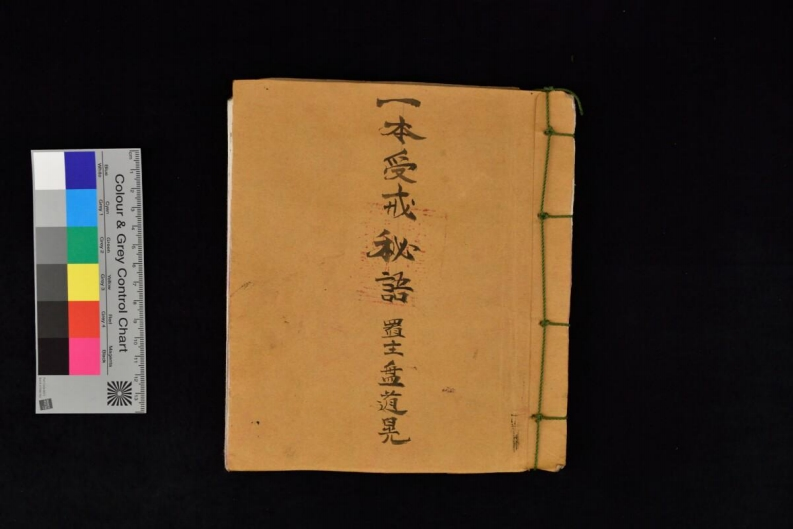 一本受戒秘語 置士盘道晃
Colour & Grey Control Chart
Blue Cyan Green Yellow Red Magenta
White Grey 1 Grey 2 Grey 3 Grey 4 Black